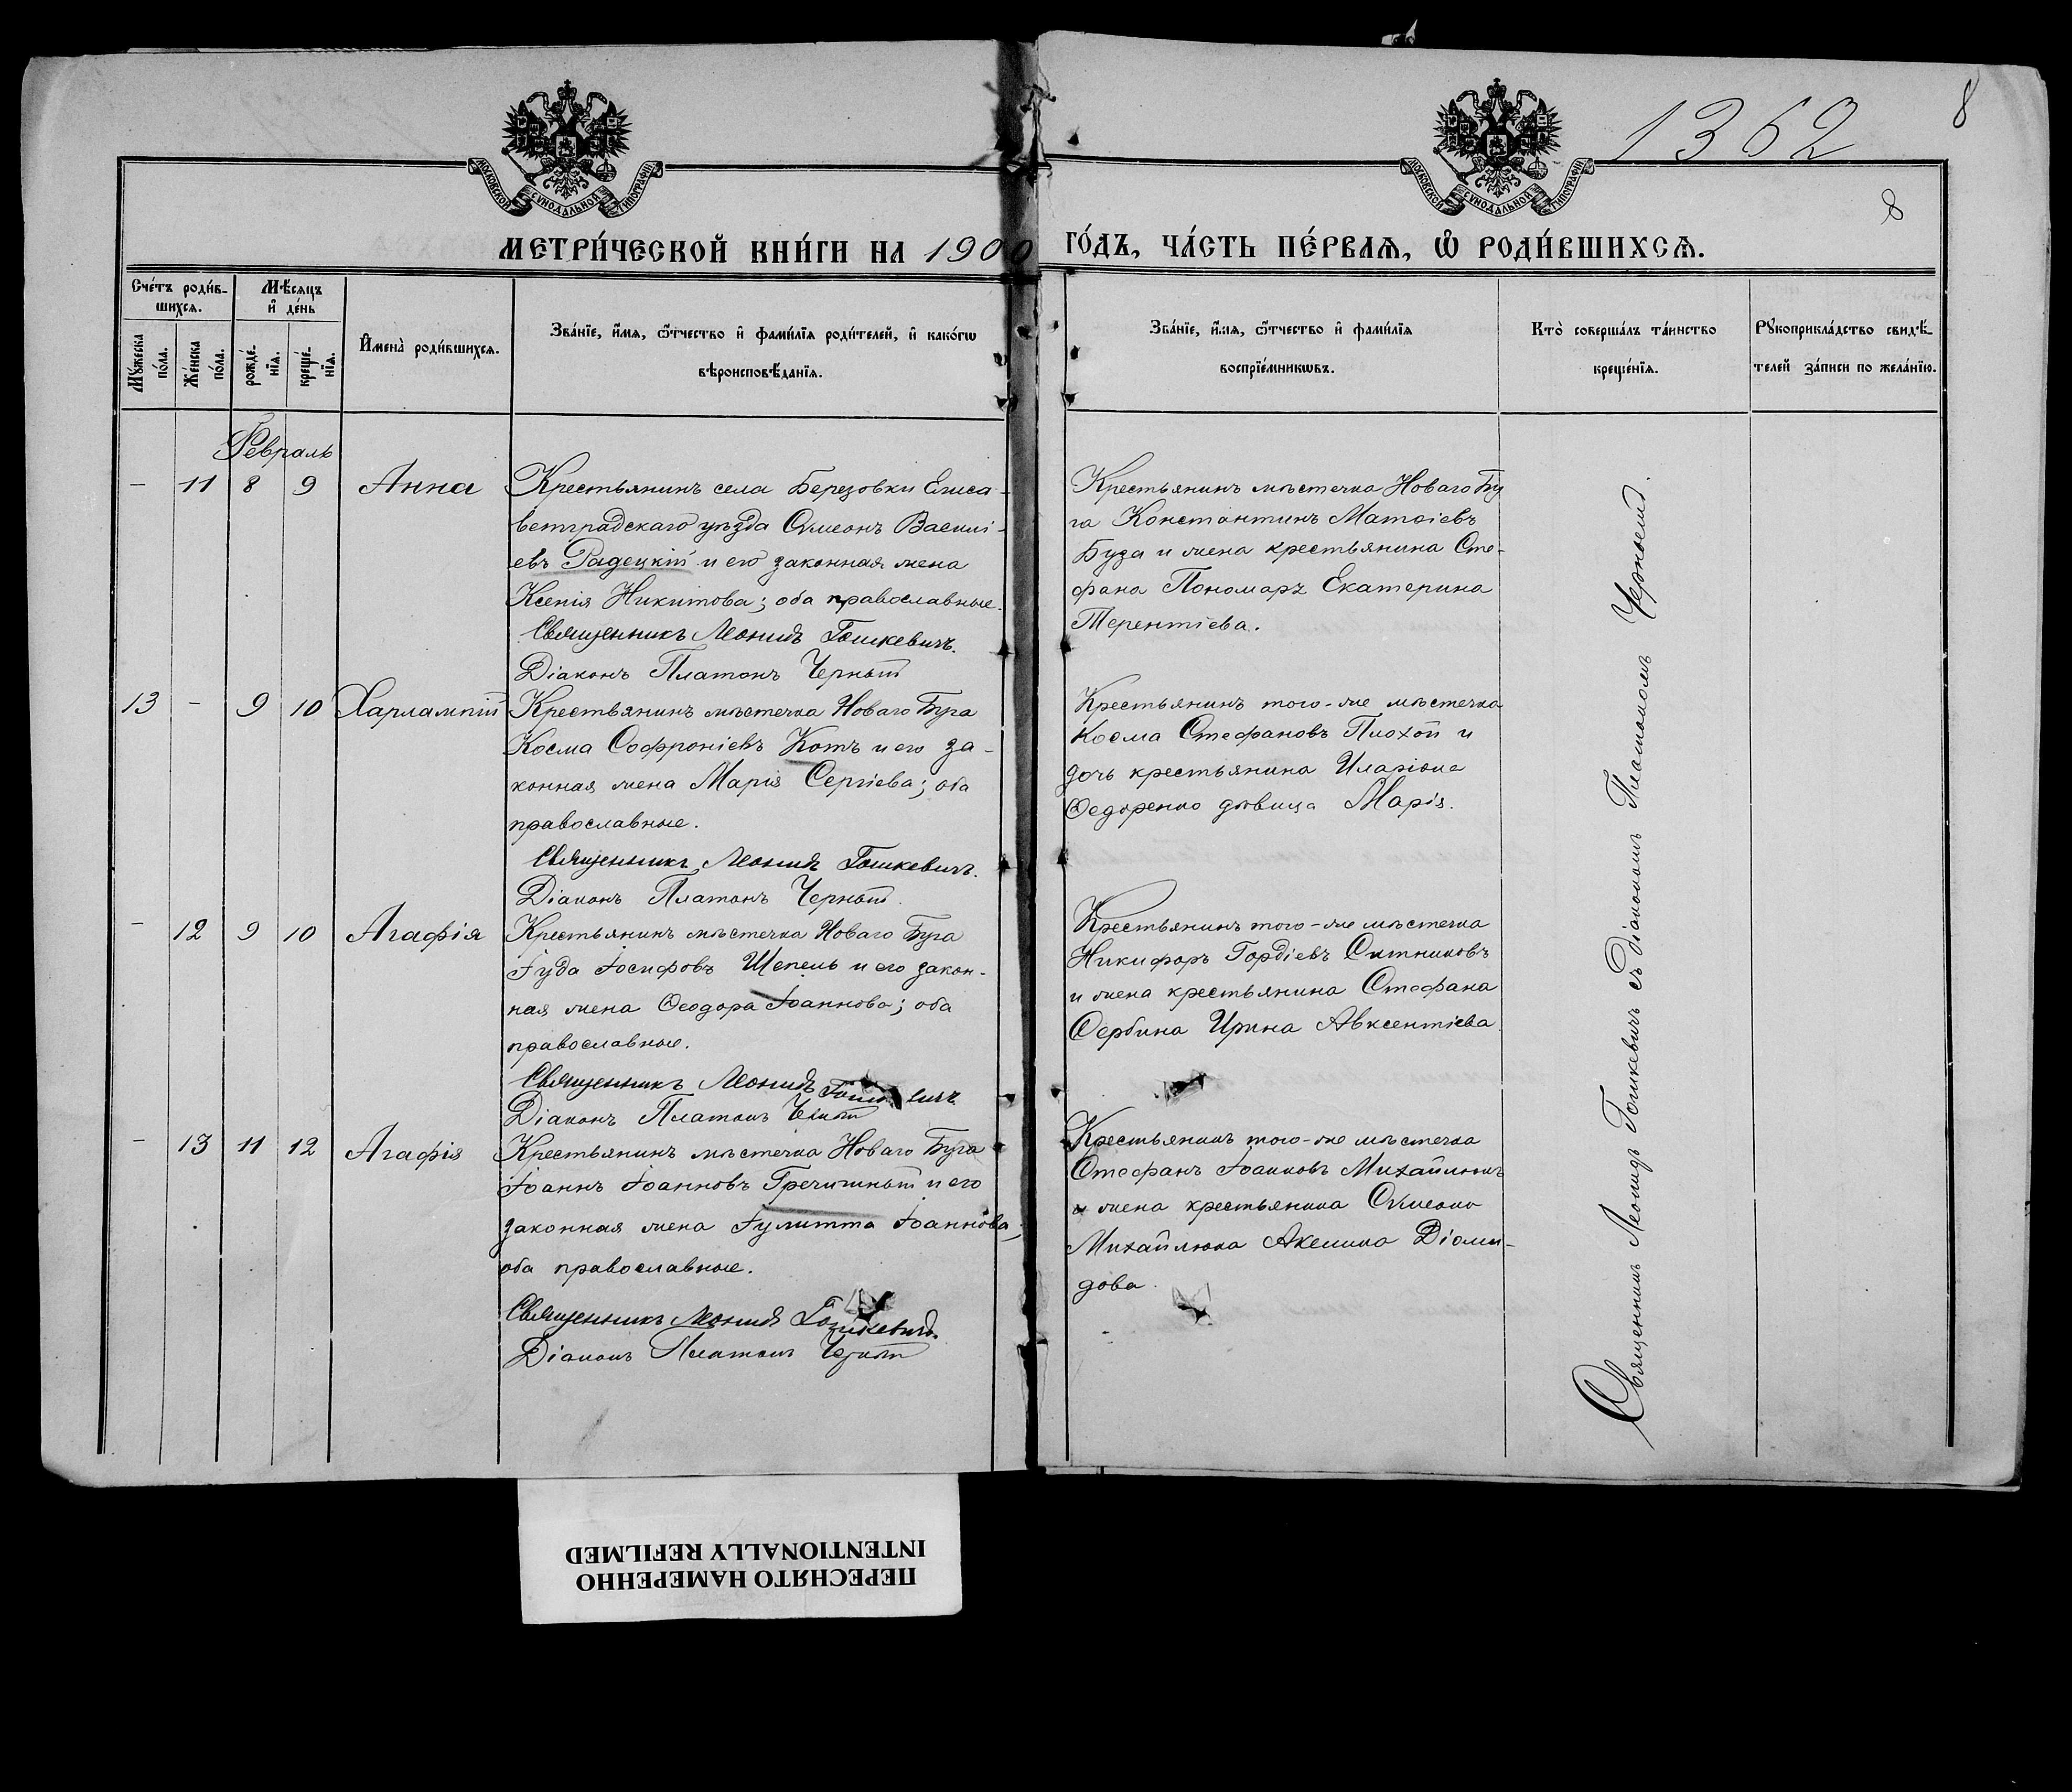 1362
8
8
МОСКОВСКОЙ СѴНОДАЛЬНОЙ ТИПОГРАФІИ
МОСКОВСКОЙ СѴНОДАЛЬНОЙ ТИПОГРАФІИ
МЕТРИ́ЧЕСКОЙ КНИ́ГИ НА 1900 ГО́ДЪ, ЧА́СТЬ ПЕ́РВАѦ, Ѡ РОДИ́ВШИХСѦ.
Сче́тъ роди́в-
шихсѧ.
Мѣ́сѧцъ
и҆ де́нь
Мꙋ́жеска
по́ла.
Же́нска
по́ла.
рожде́-
нїѧ.
креще́-
нїѧ.
И҆мена̀ роди́вшихсѧ.
Зва́нїе, и҆́мѧ, ѻ҆́тчество и҆ фами́лїѧ роди́телей, и҆ како́гѡ
вѣроисповѣ́данїѧ.
Зва́нїе, и҆́мѧ, ѻ҆́тчество и҆ фами́лїѧ
воспрїе́мникѡвъ.
Кто̀ соверша́лъ та́инство
креще́нїѧ.
Рꙋкоприкла́дство свидѣ́-
телей за́писи по жела́нїю.
Февраль
- 11 8 9 Анна
Крестьянинъ села Березовки Елиса-
ветградскаго уѣзда Сѵмеонъ Василі-
евъ Радецкій и его законная жена
Ксенія Никитова; оба православные.
Священникъ Леонидъ Гошкевичъ.
Діаконъ Платонъ Черный
Крестьянинъ мѣстечка Новаго Бу
га Константинъ Матѳіевъ
Буза и жена крестьянина Сте-
фана Пономарь Екатерина
Терентіева.
13 - 9 10 Харлампій
Крестьянинъ мѣстечка Новаго Буга
Косма Софроніевъ Котъ и его за-
конная жена Марія Сергіева; оба
православные.
Священникъ Леонидъ Гошкевичъ.
Діаконъ Платонъ Черный.
Крестьянинъ того-же мѣстечка
Косма Стефановъ Плохой и
дочь крестьянина Иларіона
Ѳедоренко дѣвица Марія.
- 12 9 10 Агафія
Крестьянинъ мѣстечка Новаго Буга
Іуда Іосифовъ Шепель и его закон-
ная жена Ѳеодора Іоаннова; оба
православные.
Священникъ Леонидъ Гошкевичъ
Діаконъ Платонъ Черный
Крестьянинъ того-же мѣстечка
Никифоръ Гордіевъ Ситниковъ
и жена крестьянина Стефана
Сербина Ирина Авксентіева.
- 13 11 12 Агафія
Крестьянинъ мѣстечка Новаго Буга
Іоаннъ Іоанновъ Гречишный и его
законная жена Іулитта Іоаннова;
оба православные.
Священникъ Леонидъ Гошкевичъ.
Діаконъ Платонъ Черный
Крестьянинъ того-же мѣстечка
Стефанъ Іоанновъ Михайлюкъ
и жена крестьянина Сѵмеона
Михайлюка Акилина Діоми-
дова.
Священникъ Леонидъ Гошкевичъ съ діакономъ Платономъ Чернымъ.
ПЕРЕСНЯТО НАМЕРЕННО
INTENTIONALLY REFILMED